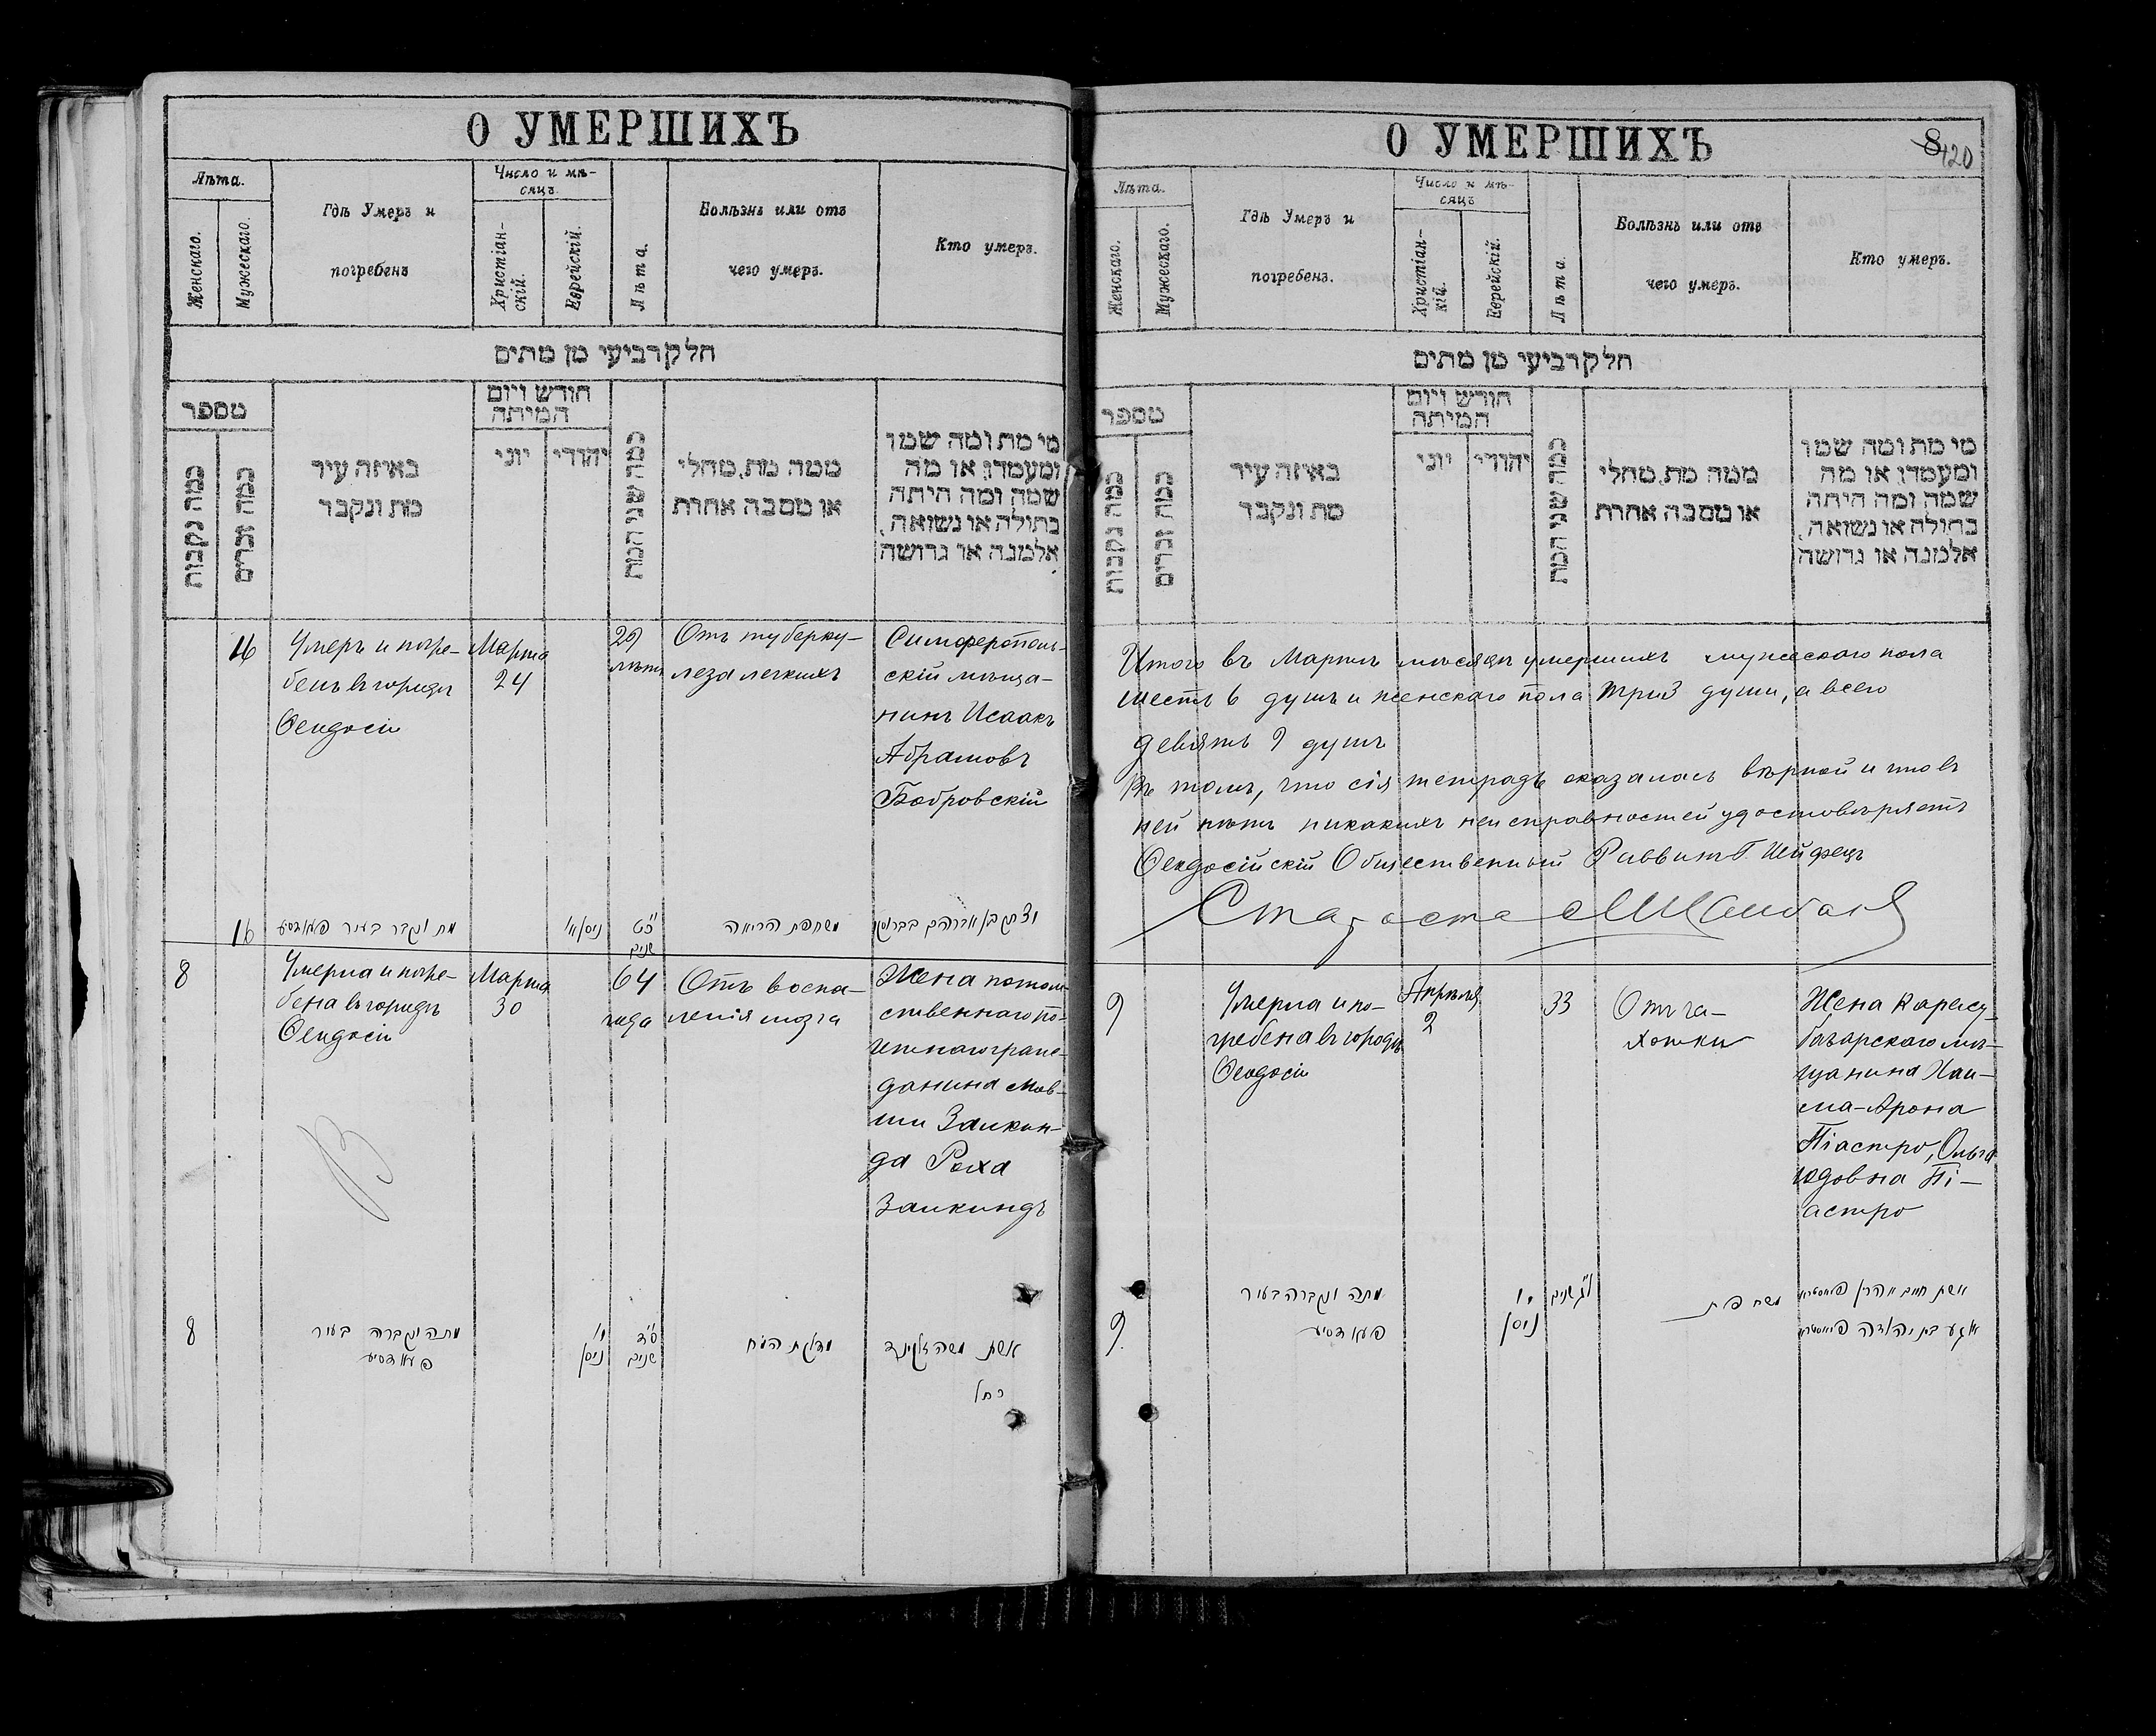 О УМЕРШИХЪ
Лѣта.
Женскаго.
Мужескаго.
Гдѣ Умеръ и
погребенъ
Число и мѣ-
сяцъ.
Христіан-
скій.
Еврейскій.
Лѣта.
Болѣзнь или отъ
чего умеръ.
Кто умеръ.
חלק רביעי מן מתים
מספר
כמה נקבות
כמה זכרים
באיזה עיר
מת ונקבר
חודש ויום
המיתה
יוני
יהודי
כמה שני המת
ממה מת, מחלי
או מסבה אחרת
מי מת ומה שמו
ומעמדו, או מה
שמה ומה היתה
בתולה או נשואה,
אלמנה או גרושה
16
Умеръ и погре-
бенъ въ городѣ
Ѳеодосіи
Марта
24
29
лѣтъ
Отъ туберку-
леза легкихъ
Симферополь-
скій мѣща-
нинъ Исаакъ
Абрамовъ
Бобровскій
16
מת ונקבר בעיר
ניסן
כ״ט
שנים
משחפת הריאה
יצחק בן אברהם
8
Умерла и погре-
бена въ городѣ
Ѳеодосіи
Марта
30
64
года
Отъ воспа-
ленія мозга
Жена потом-
ственнаго по-
четнаго граж-
данина Мов-
ши Залкин-
да Рохл
Залкиндъ
8
מתה ונקברה בעיר
ניסן
ס״ד
שנים
מדלקת המח
אשת משה זאלקינד
רחל
О УМЕРШИХЪ
8
420
Лѣта.
Женскаго.
Мужескаго.
Гдѣ Умеръ и
погребенъ.
Число и мѣ-
сяцъ
Христіан-
кій.
Еврейскій.
Лѣта.
Болѣзнь или отъ
чего умеръ.
Кто умеръ.
חלק רביעי מן מתים
מספר
כמה נקבות
כמה זכרים
באיזה עיר
מת ונקבר
חודש ויום
המיתה
יוני
יהודי
כמה שני המת
ממה מת, מחלי
או מסבה אחרת
מי מת ומה שמו
ומעמדו, או מה
שמה ומה היתה
בתולה או נשואה,
אלמנה או גרושה
Итого въ Мартѣ мѣсяцѣ умершихъ мужескаго пола
шесть 6 душъ и женскаго пола три 3 души, а всего
девять 9 душъ
Въ томъ, что сія тетрадь оказалась вѣрной и что въ
ней нѣтъ никакихъ неисправностей удостовѣряетъ
Ѳеодосійскій Общественный Раввинъ
Староста
9
Умерла и по-
гребена въ городѣ
Ѳеодосіи
Апрѣля
2
33
Отъ ча-
хотки
Жена Карасу-
базарскаго мѣ-
щанина Хаи-
ма-Арона
Піастро, Ольга
Юдовна Пі-
астро
9.
מתה ונקברה בעיר
ניסן
ל״ג שנים
משחפת
אשת חיים אהרן
בת יהודה